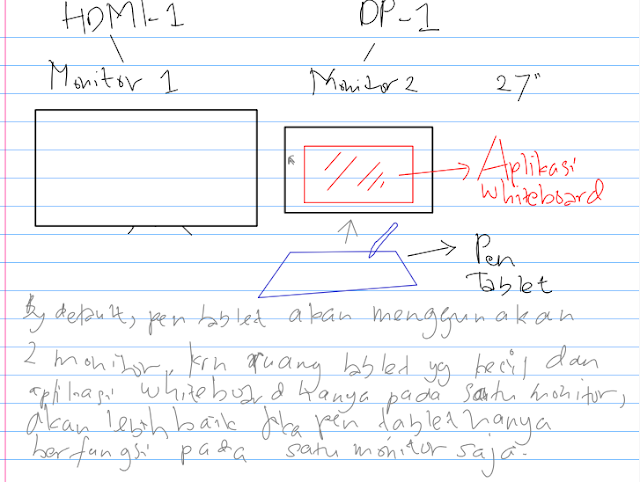 HDMI-1
DP-1
Monitor 1
Monitor 2
27"
Aplikasi
Whiteboard
Pen
Tablet
By default, pen tablet akan menggunakan
2 monitor, krn ruang tablet yg kecil dan
aplikasi whiteboard hanya pada satu monitor,
akan lebih baik jika pen tablet hanya
berfungsi pada satu monitor saja.